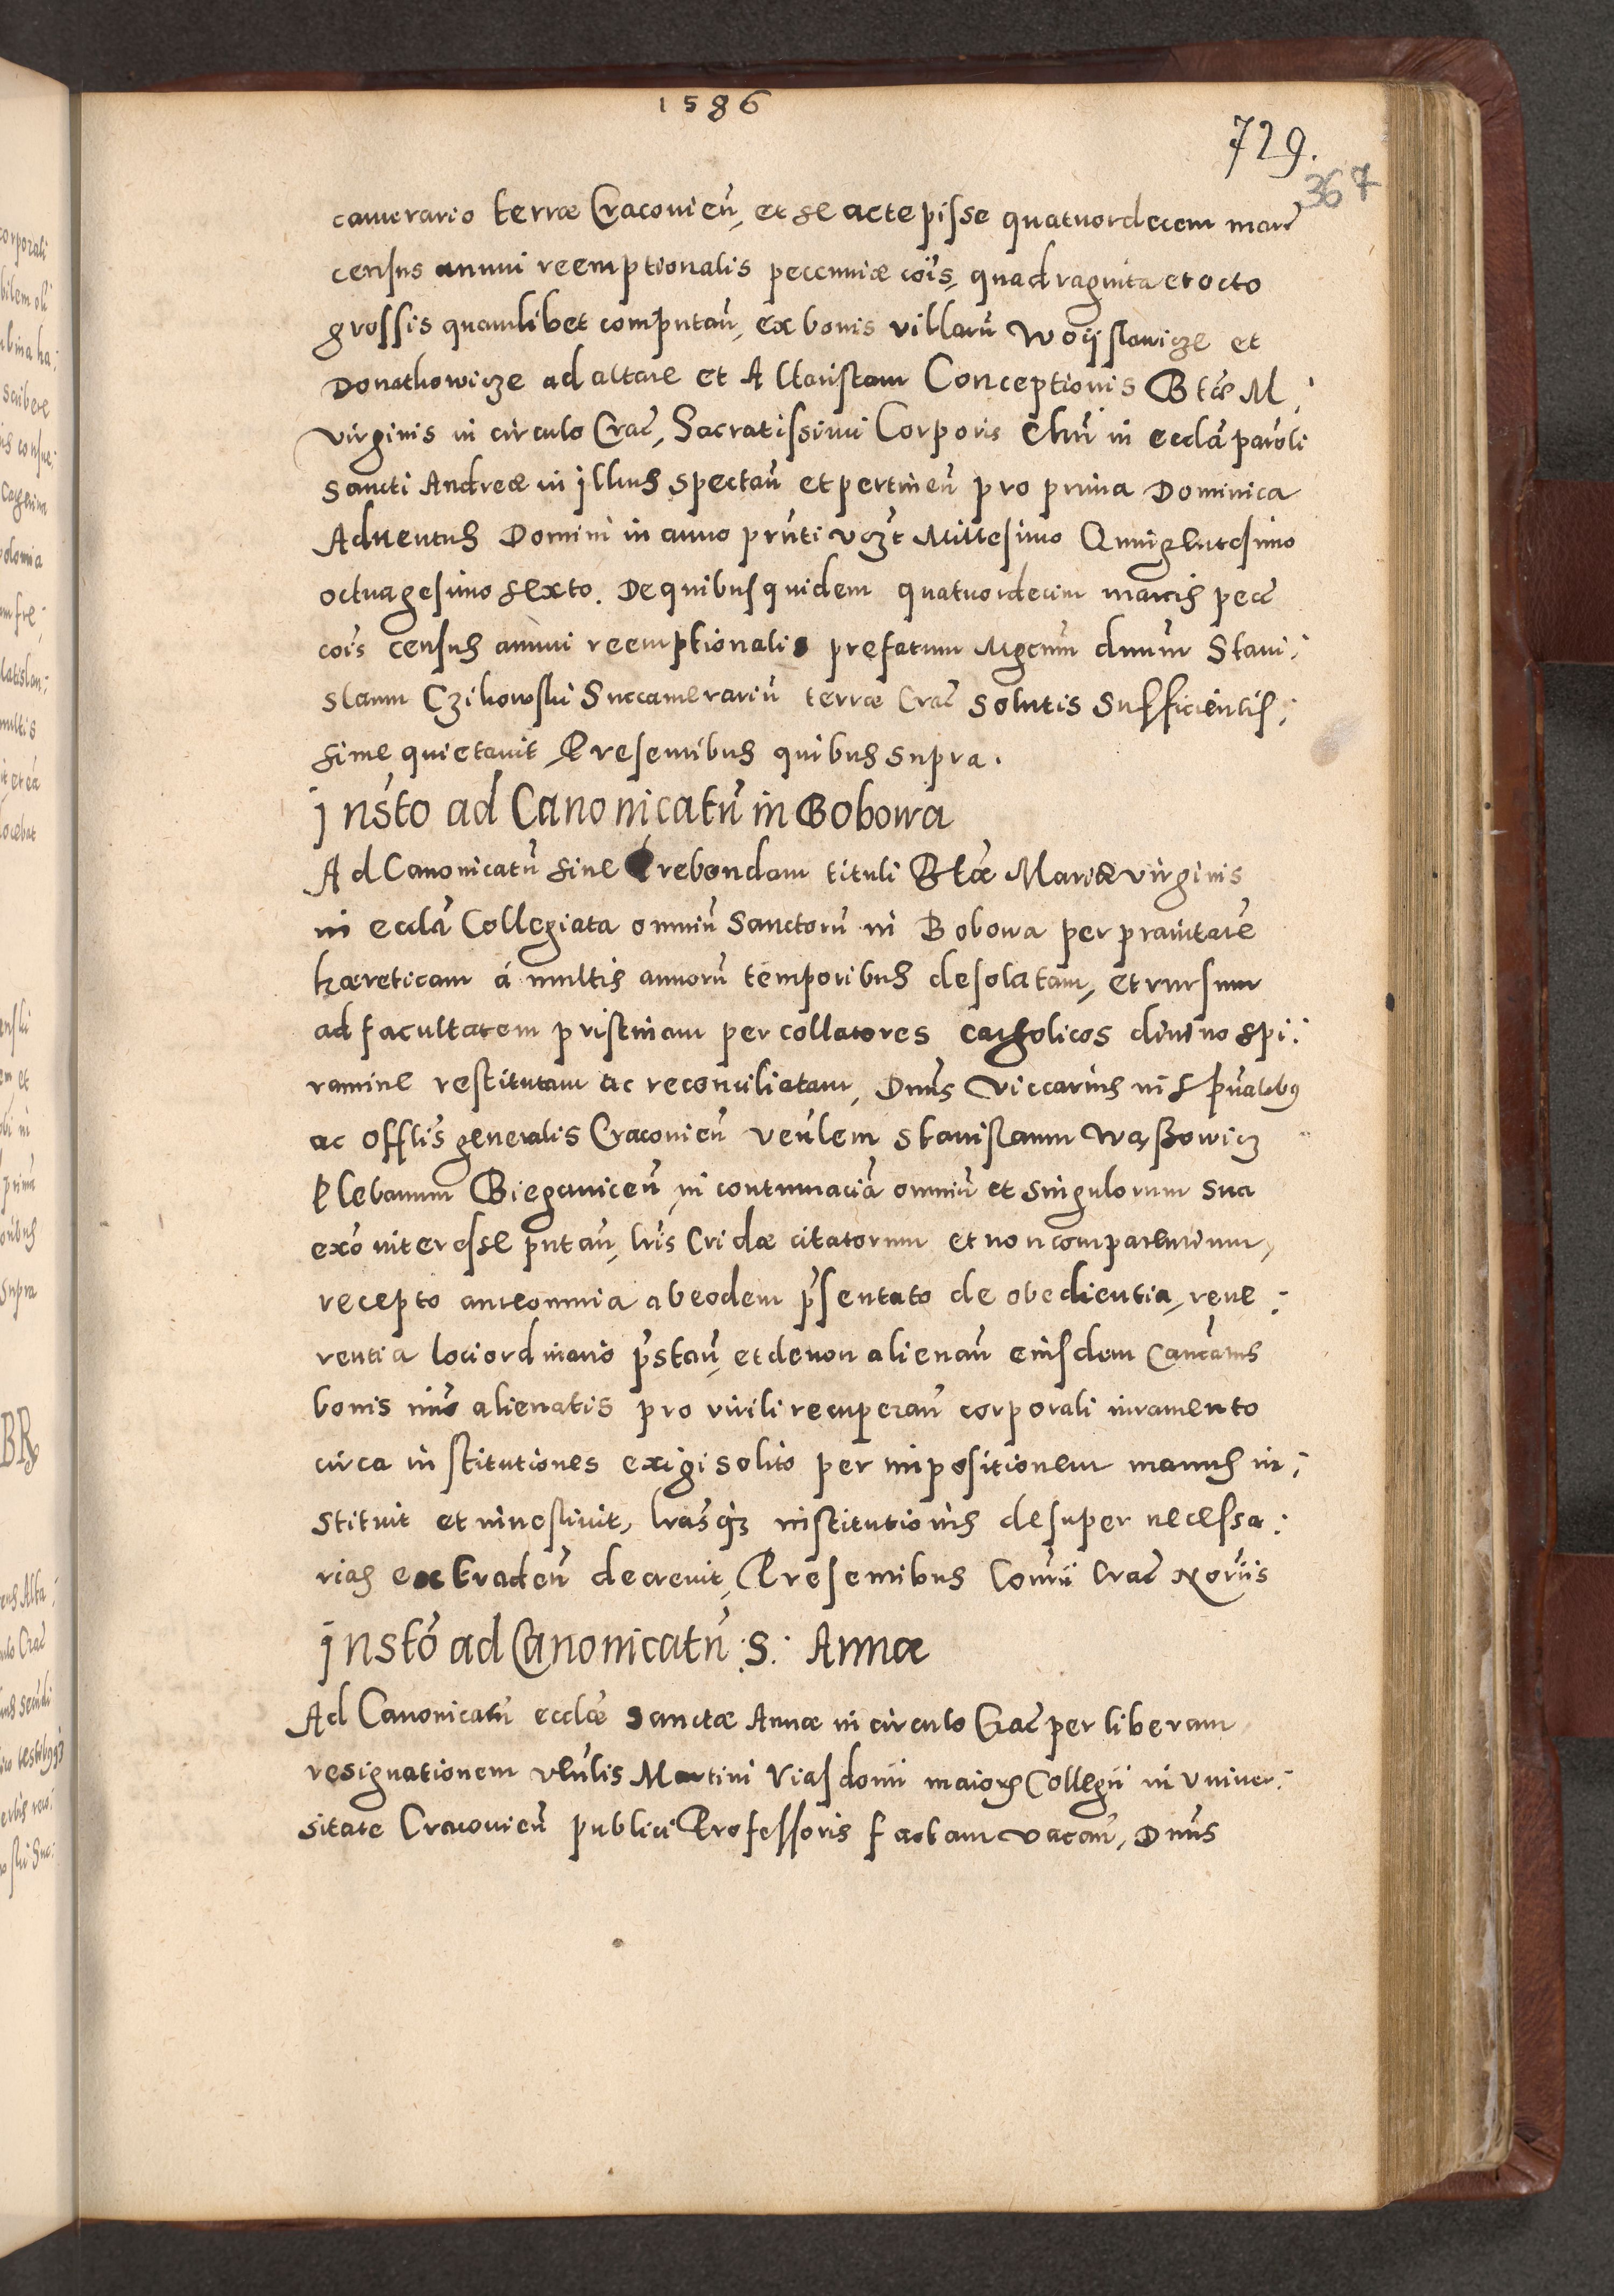 1586
729.
367
camerario terræ Cracovieñ, et se accepisse quatuordecem marc̃
census annui reemptionalis peccuniæ cõis, quadraginta et octo
grossis quamlibet computañ, ex bonis villarũ Woÿslawicze et
Donathowicze ad altare et Altaristam Conceptionis Btæ M:
Virginis in circulo Crac̃, Sacratissimi Corporis Chri in ecclã paroli
Sancti Andreæ in illius spectañ et pertineñ pro prima Dominica
Adventus Domini in anno prñti vczt Millesimo Quingentesimo
octuagesimo sexto. De quibus quidem quatuordecim marcis pecc̃
cõis census annui reemptionalis prefatum Mgcum dnum Stani:
slaum Czikowski Succamerariũ terræ Crac̃ solutis sufficientis:
sime quietavit, Presentibus quibus supra.
Insto ad Canonicatũ in Bobowa
Ad Canonicatũ sive Prebendam tituli Btæ Mariæ virginis
in ecclã Collegiata omniũ Sanctorũ in Bobowa per pravitatẽ
hæreticam á multis annorũ temporibus desolatam, et rursum
ad facultatem pristinam per collatores catholicos divino spi:
ramine restitutam ac reconciliatam, Dnus Viccarius in s̃pũalibus
ac Offlis generalis Cracovieñ veñlem Stanislaum Wąssowicz
Plebanum Bieganiceñ, in contumaciã omniũ et singulorum sua
exõ interesse putañ, lris Cridæ citatorum et non comparentium,
recepto ante omnia ab eodem p̃sentato de obedientia, reve:
rentia loci ordinario p̃stañ, et de non alienañ eiusdem Cantatus
bonis imo alienatis pro virili recuperañ corporali iuramento
circa institutiones exigi solito per impositionem manus in:
stituit et investivit, lrasq3 institutionis desuper necessa:
rias extradeñ decrevit, Presentibus Conrii Crac̃ Noriis
Instó ad Canonicatũ :S: Annæ
Ad Canonicatũ ecclæ Sanctæ Annæ in circulo Crac̃ per liberam
resignationem veñlis Martini Viasdomi maioris Collegii in Univer:
sitate Cracovieñ publici Professoris factam vacañ, Dnus